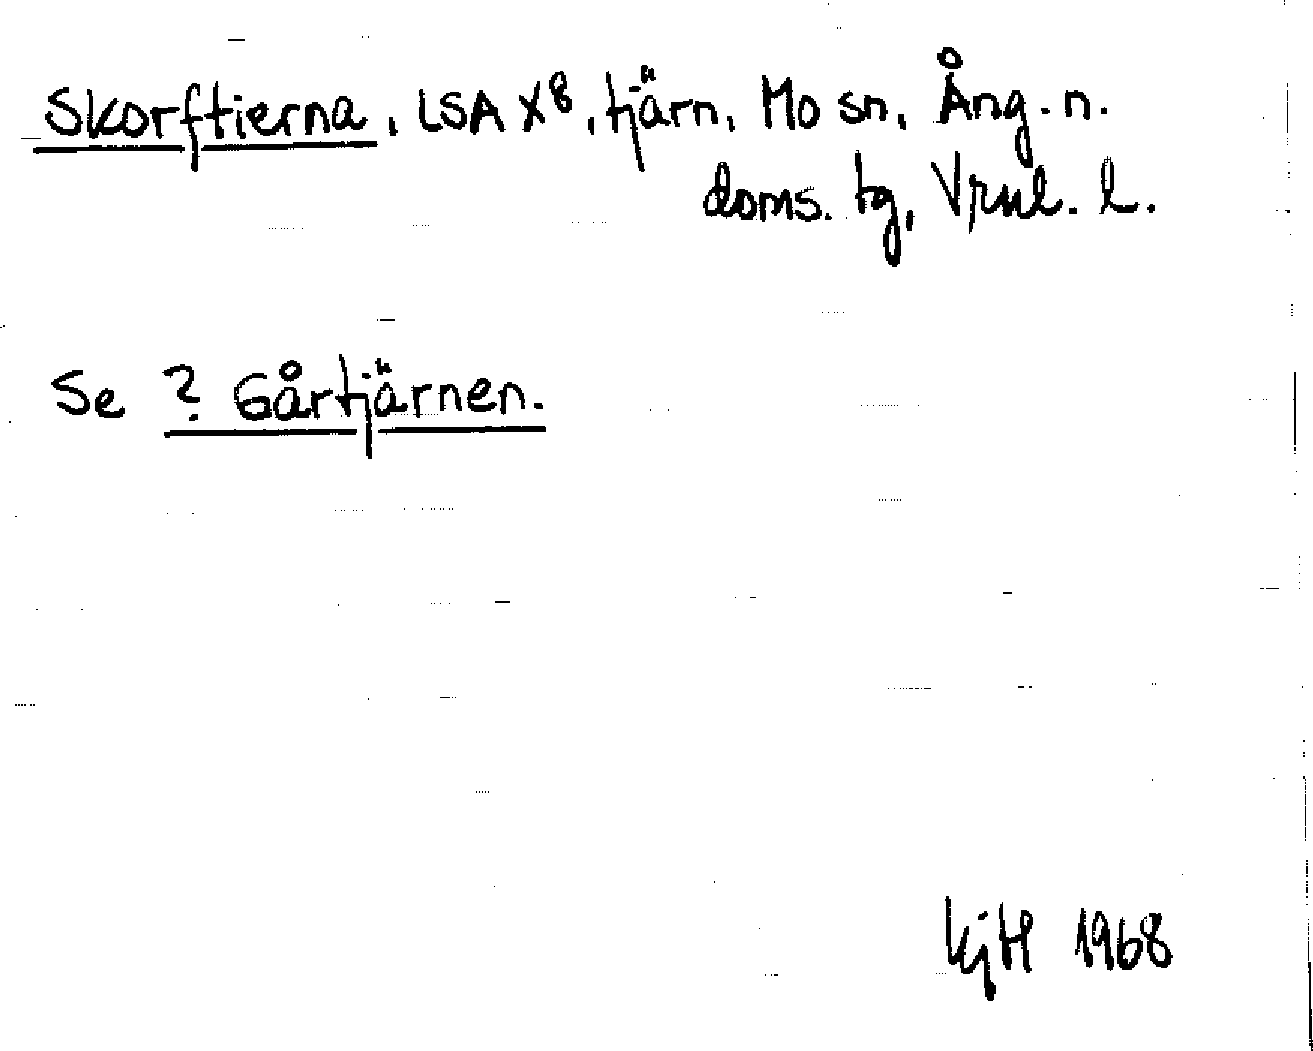 Skorftierna, LSA X8, tjärn, Mo sn, Ång. n.
doms. tg, Vrnl. l.
Se ? Gårtjärnen.
KjH 1968